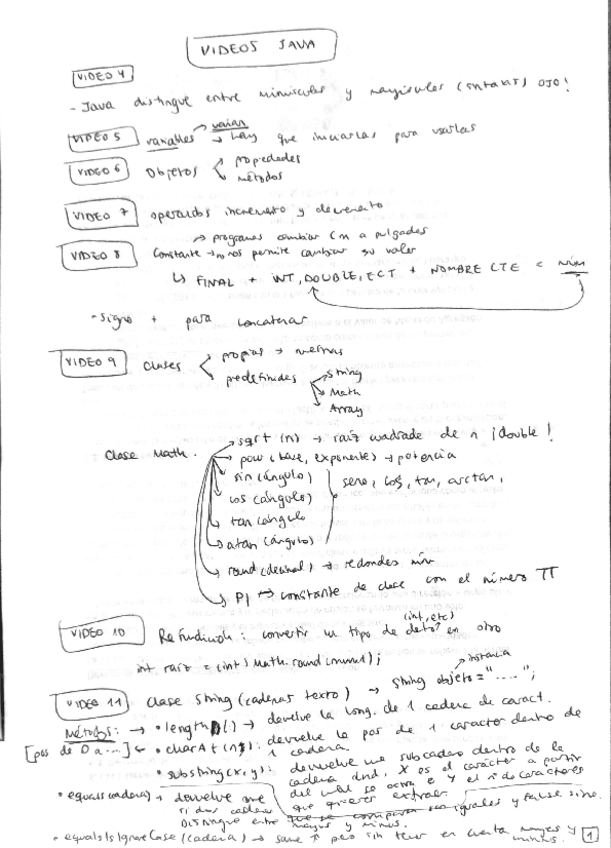 VIDEOS JAVA
VIDEO 4
- Java distingue entre minúsculas y mayúsculas (sintaxis) OJO!
varian
VIDEO 5 variables → hay que iniciarlas para usarlas
VIDEO 6 Objetos propiedades
métodos
VIDEO 7 operandos incremento y decremento
→ programas cambiar cm a pulgadas
VIDEO 8 Constante → no nos permite cambiar su valor
↳ FINAL + INT, DOUBLE, ECT + NOMBRE CTE = núm
- Signo + para concatenar
VIDEO 9 Clases propias → nuestras
predefinidas String
Math
Array
Clase Math. sqrt (n) → raíz cuadrada de n ¡double!
pow (base, exponente) → potencia
sin (ángulo) seno, cos, tan, arctan,
cos (ángulo)
tan (ángulo
atan (ángulo)
round (decimal) → redondea núm
PI → constante de clase con el número π
(int, etc)
VIDEO 10 Refundición: convertir un tipo de datos en otro
int raiz = (int) Math.round(num1);
instancia
VIDEO 11 Clase String (cadenas texto) → String objeto = "....";
Métodos: → • length () → devuelve la long. de 1 cadena de caract.
[pos de 0 a ...] ← • charAt (n): devuelve la pos de 1 caracter dentro de
1 cadena.
• substring (x, y): devuelve una subcadena dentro de la
cadena dnd. X es el carácter a partir
del cual se extrae e y el nº de caracteres
que quieres extraer.
• equals (cadena) → devuelve
si dos cadenas que se comparan son iguales y false si no.
Distingue entre mayus y minus.
• equalsIgnoreCase (cadena) → same ↑ pero sin tener en cuenta mayus y
minus. 1